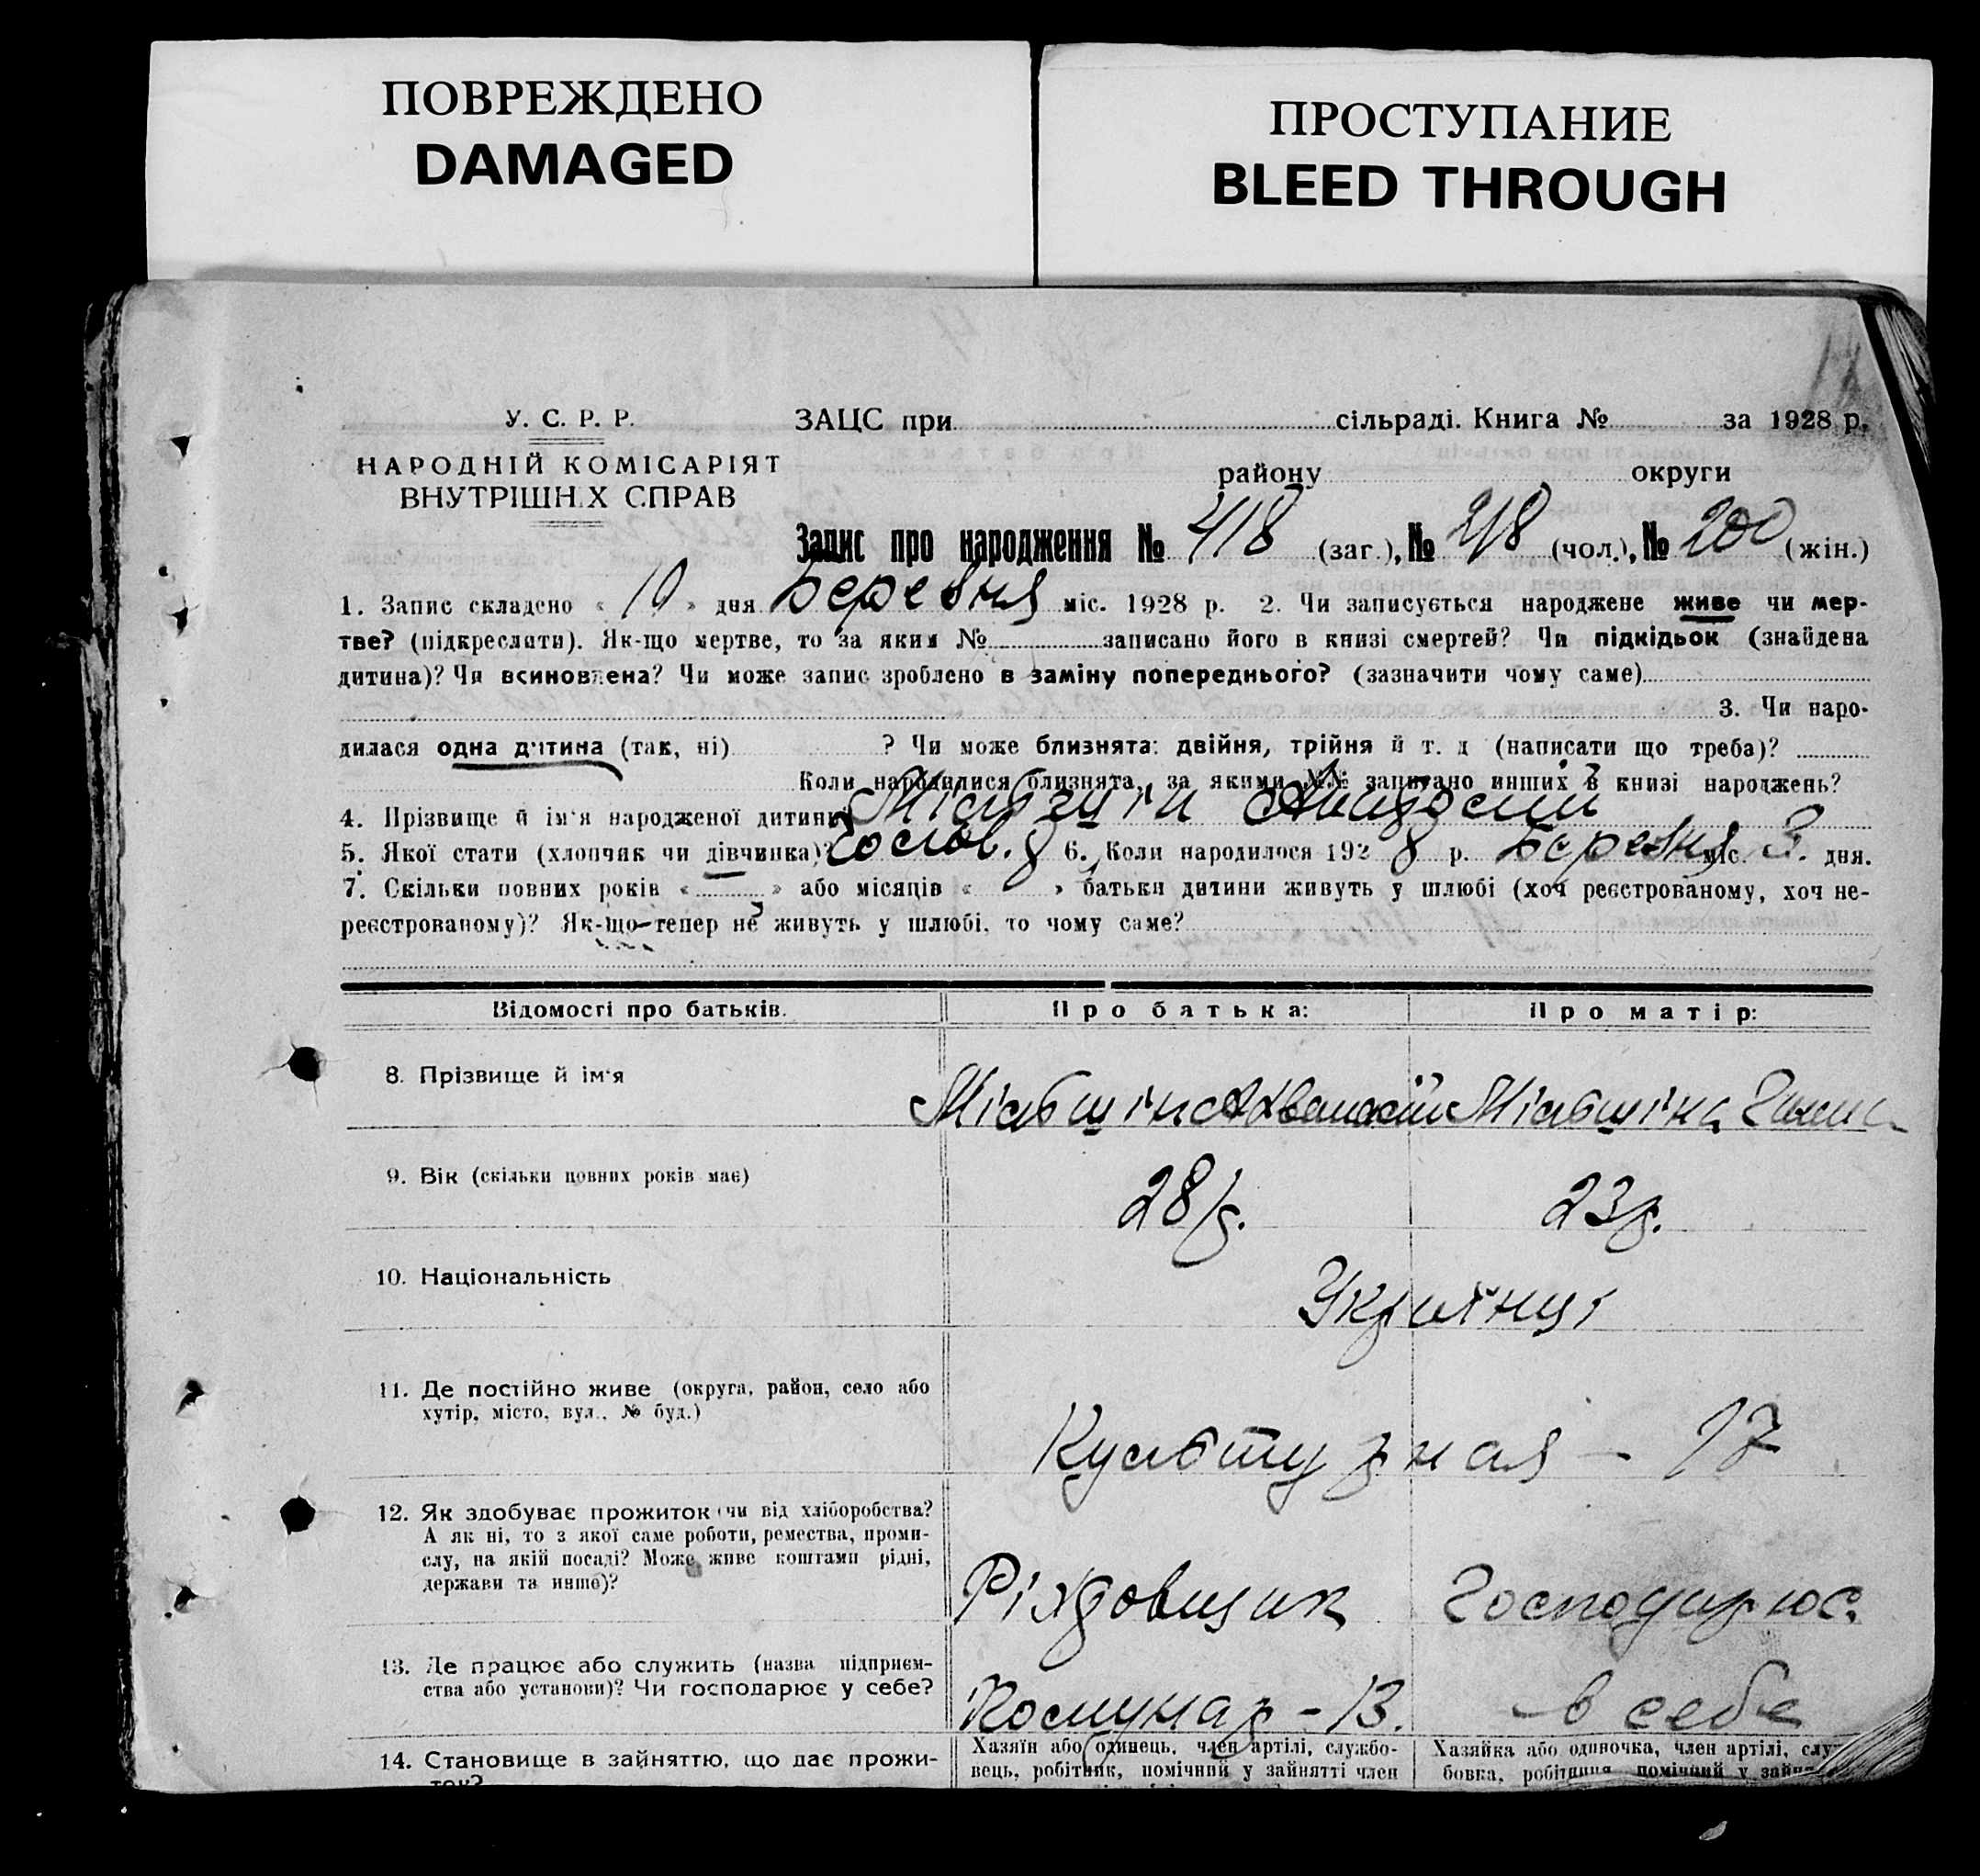 ПОВРЕЖДЕНО
DAMAGED
ПРОСТУПАНИЕ
BLEED THROUGH
У. С. Р. Р.
НАРОДНІЙ КОМІСАРІЯТ
ВНУТРІШНІХ СПРАВ
ЗАЦС при сільраді. Книга № за 1928 р.
району округи
Запис про народження № 418 (заг.), № 218 (чол.), № 200 (жін.)
1. Запис складено « 10 » дня Березня міс. 1928 р. 2. Чи записується народжене живе чи мер-
тве? (підкреслити). Як-що мертве, то за яким № записано його в книзі смертей? Чи підкідьок (знайдена
дитина)? Чи всиновлена? Чи може запис зроблено в заміну попереднього? (зазначити чому саме)
3. Чи наро-
дилася одна дитина (так, ні) ? Чи може близнята: двійня, трійня й т. д (написати що треба)?
Коли народилися близнята, за якими №№ записано инших в книзі народжень?
4. Прізвище й ім'я народженої дитини
5. Якої стати (хлопчик чи дівчинка)? 6. Коли народилося 1928 р. Березня міс. 3. дня.
7. Скільки повних років « » або місяців « » батьки дитини живуть у шлюбі (хоч реєстрованому, хоч не-
реєстрованому)? Як-що тепер не живуть у шлюбі, то чому саме?
Відомості про батьків. Про батька: Про матір:
8. Прізвище й ім'я
9. Вік (скільки повних років має) 28 р. 23 р.
10. Національність Українці
11. Де постійно живе (округа, район, село або
хутір, місто, вул., № буд.)
Культурная - 17
12. Як здобуває прожиток (чи від хліборобства?
А як ні, то з якої саме роботи, ремества, проми-
слу, на якій посаді? Може живе коштами рідні,
держави та инше)?
Господарює.
13. Де працює або служить (назва підприєм-
ства або установи)? Чи господарює у себе?
Комунар - 13. в себе
14. Становище в зайняттю, що дає прожи-
ток?
Хазяїн або одинець, член артілі, службо-
вець, робітник, помічний у зайнятті член
Хазяйка або одиночка, член артілі,
бовка, робітниця, помічний у